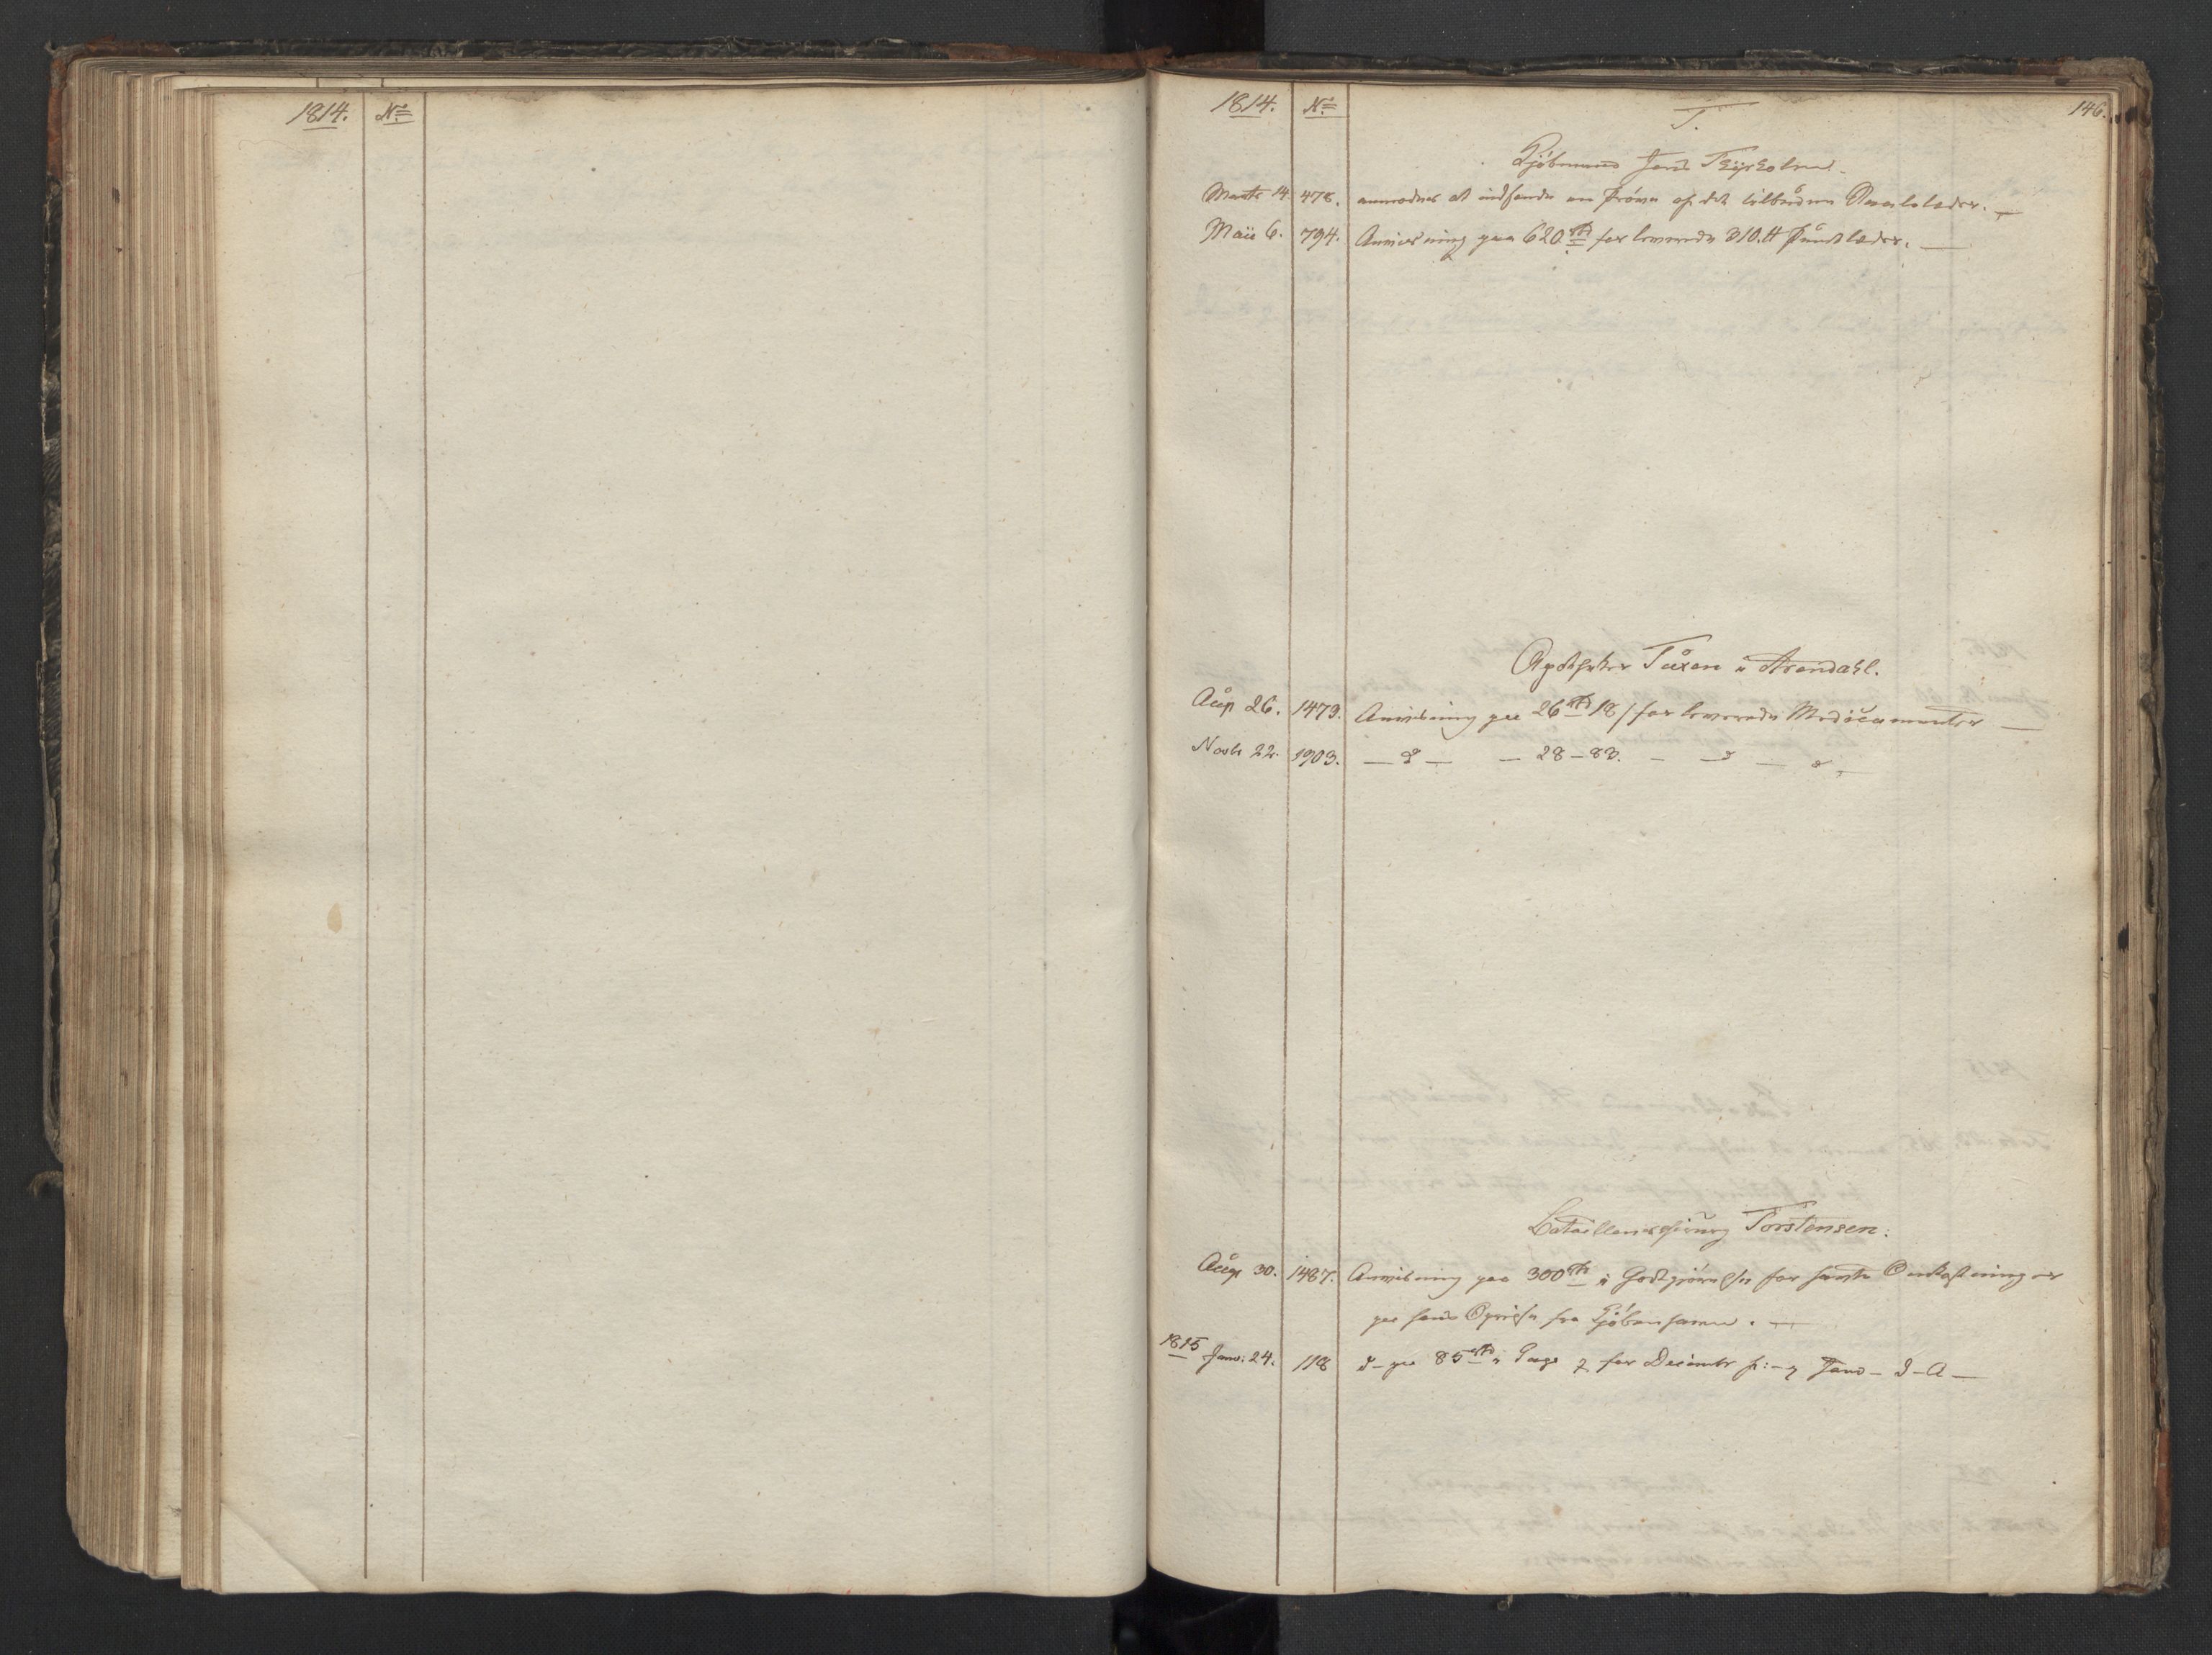 1814. No
1814. No T. 146.
Kjøbmand Jens Thyrholm.
Marts 14. 478. anmodes at indsende en Prøve af det tilbudne Saalelæder. —
Maii 6. 794. Anviisning paa 620 rd for leverede 310. ℔ Pundlæder. —
Apotheker Tuxen i Arendahl.
Aug 26. 1479. Anvisning paa 26 rd 18 / for leverede Medicamenter —
Novbr 22. 1903. — d — — 28 – 83. — d — d —
Bataillonschirurg Torstensen.
Aug 30. 1487. Anvisning paa 300 rd i Godtgjørelse for havte Omkostninger
paa hans Opreise fra Kjøbenhavn. —
1815 Janv: 24. 118 d – paa 85 rd i Gage for Decembr f: – Janv – d – A —